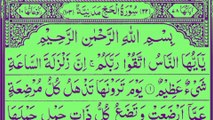 سُوْرَةُ الْحَجِّ مَدَنِيَّةٌ
بِسْمِ اللّٰهِ الرَّحْمٰنِ الرَّحِيْمِ
يٰٓاَيُّهَا النَّاسُ اتَّقُوْا رَبَّكُمْ ۚ اِنَّ زَلْزَلَةَ السَّاعَةِ
شَيْءٌ عَظِيْمٌ ۝۱ يَوْمَ تَرَوْنَهَا تَذْهَلُ كُلُّ مُرْضِعَةٍ
عَمَّآ اَرْضَعَتْ وَتَضَعُ كُلُّ ذَاتِ حَمْلٍ حَمْلَهَا